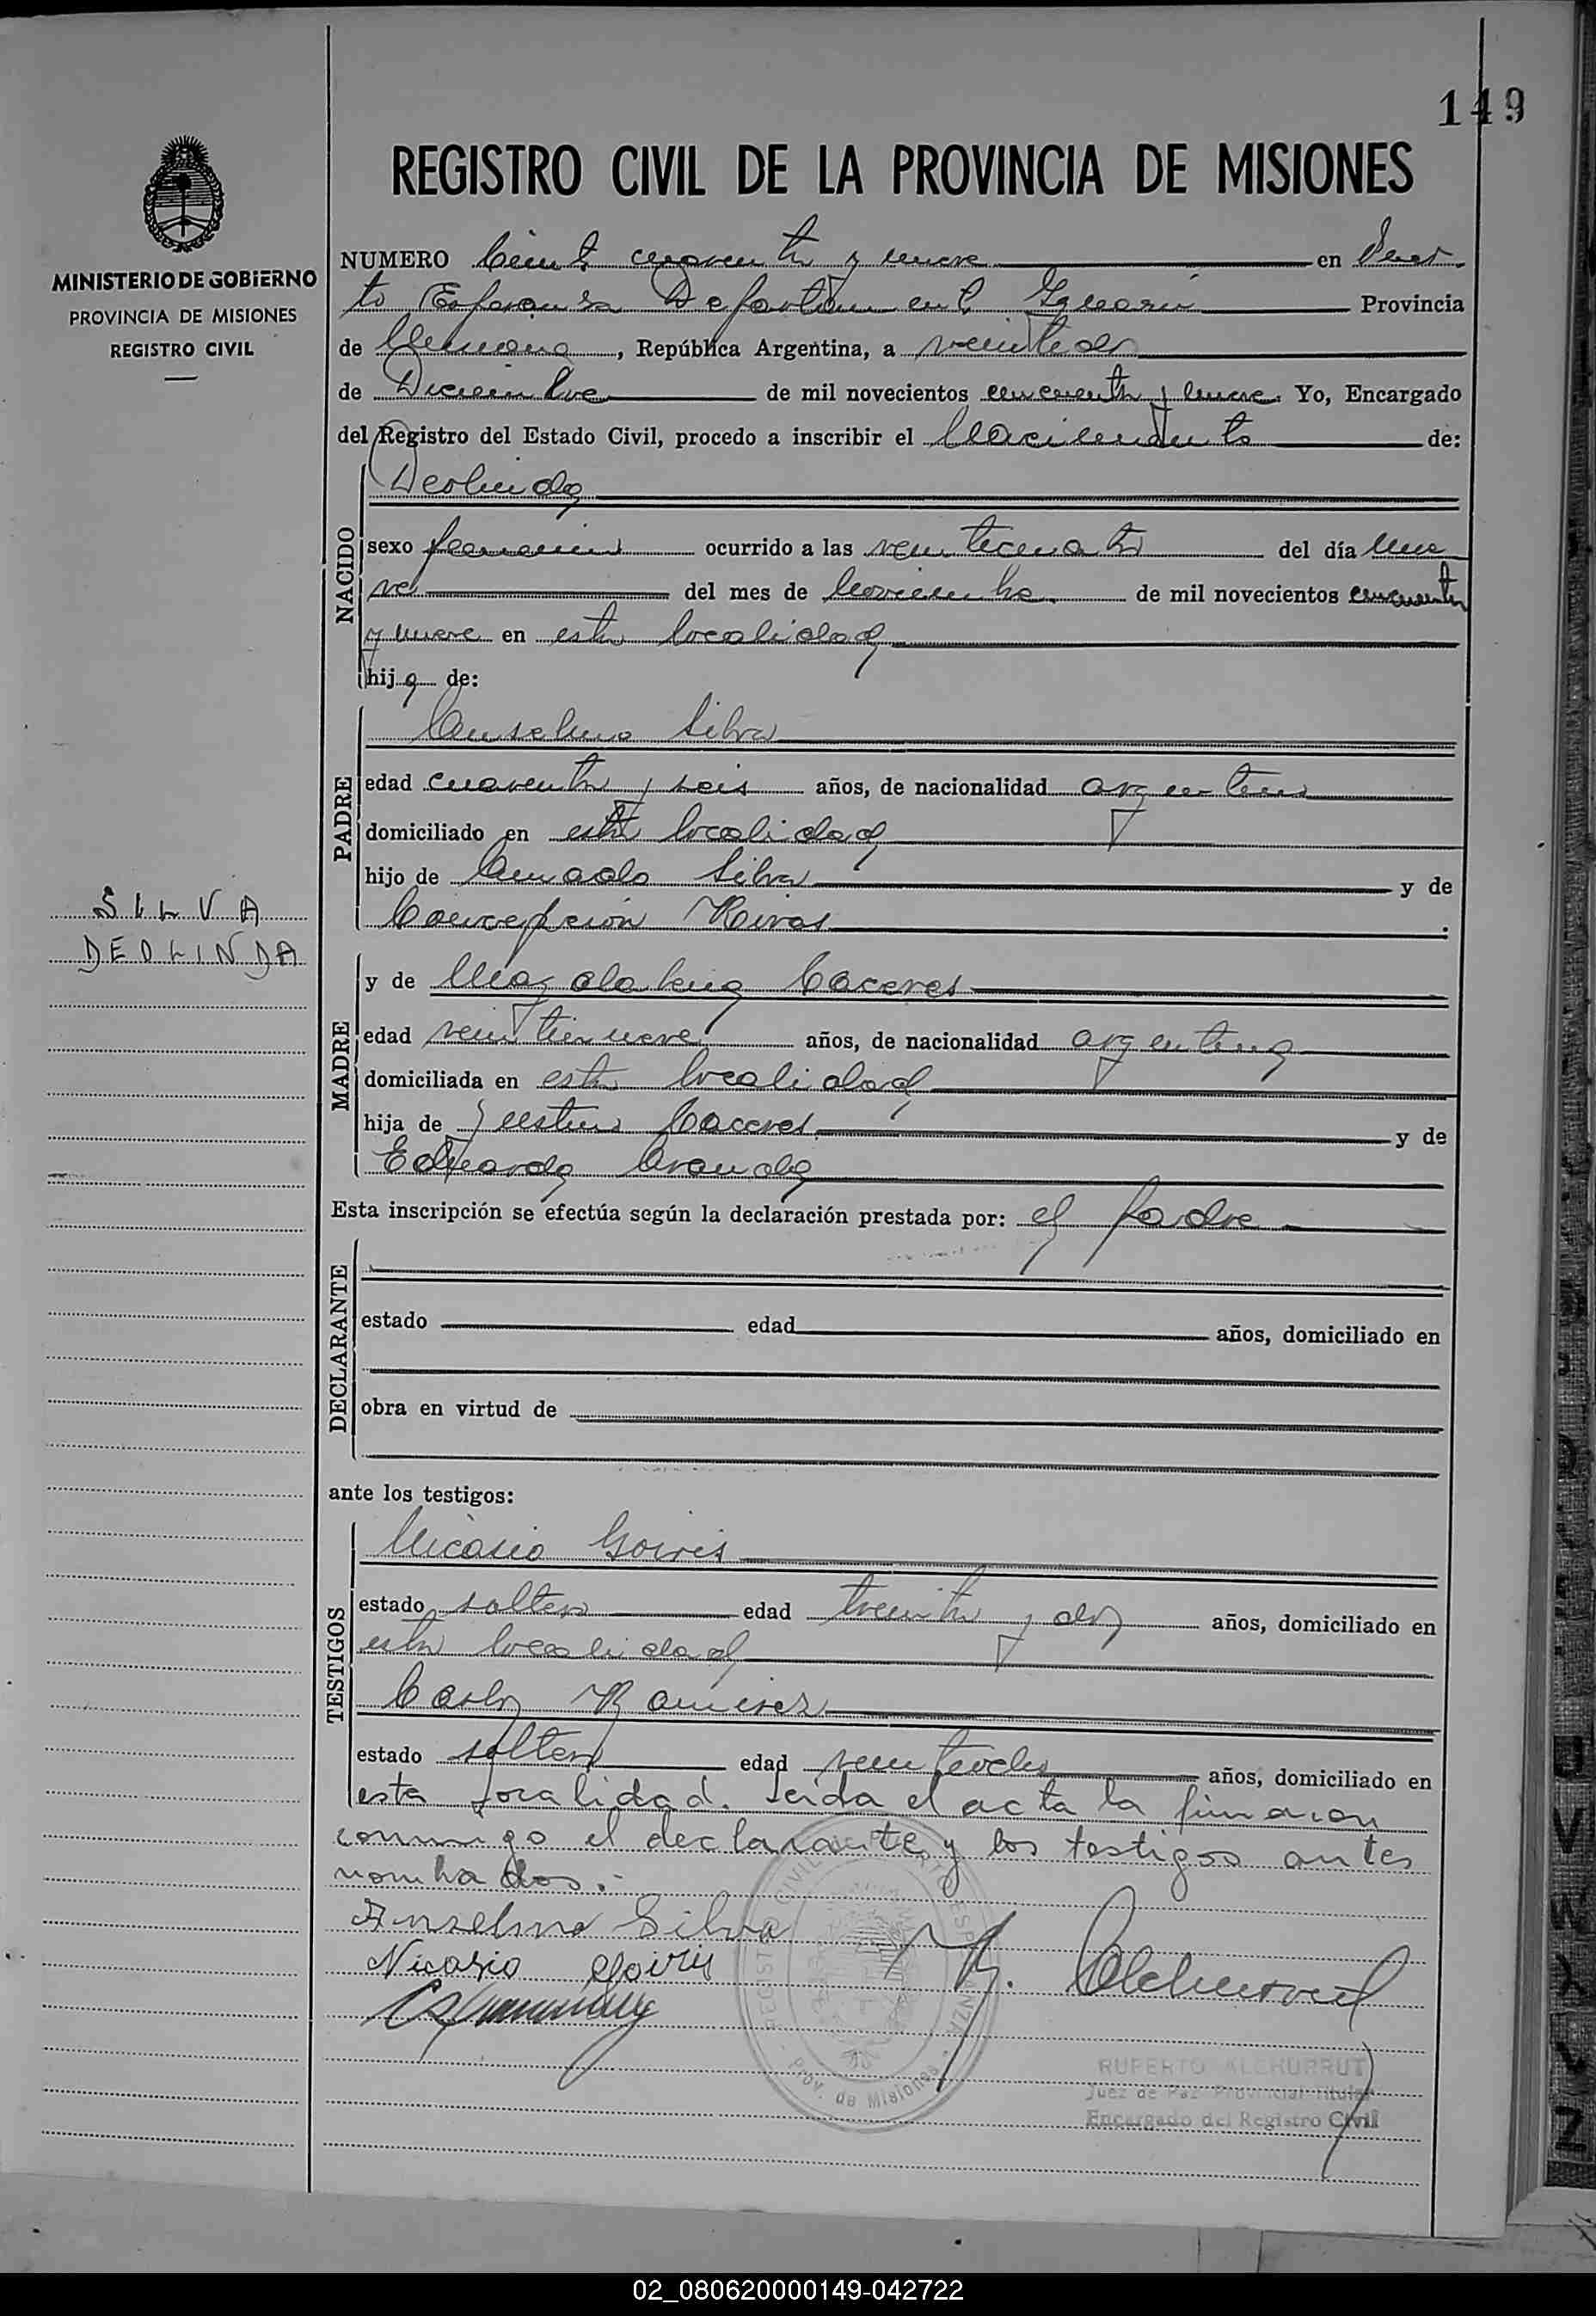 149
REGISTRO CIVIL DE LA PROVINCIA DE MISIONES
MINISTERIO DE GOBIERNO
PROVINCIA DE MISIONES
REGISTRO CIVIL
NUMERO Ciento cuarenta y nueve en Puer
to Esperanza Departamento Iguazú Provincia
de Misiones, República Argentina, a veintidos
de Diciembre de mil novecientos cincuenta y nueve. Yo, Encargado
del Registro del Estado Civil, procedo a inscribir el Nacimiento de:
NACIDO
Deolinda
sexo femenino ocurrido a las veinticuatro del día nue
ve del mes de Noviembre de mil novecientos cincuenta
y nueve en esta localidad
hija de:
PADRE
Anselmo Silva
edad cuarenta y seis años, de nacionalidad argentino
domiciliado en esta localidad
hijo de Amado Silva y de
Concepción Rivas.
SILVA
DEOLINDA
MADRE
y de Magdalena Caceres
edad veintinueve años, de nacionalidad argentina
domiciliada en esta localidad
hija de Justino Caceres y de
Eduarda Aranda
Esta inscripción se efectúa según la declaración prestada por: el padre
DECLARANTE
estado edad años, domiciliado en
obra en virtud de
ante los testigos:
TESTIGOS
Nicasio Goiris
estado soltero edad treinta y dos años, domiciliado en
esta localidad
Carlos Ramirez
estado soltero edad años, domiciliado en
esta localidad. Leida el acta la firmaron
conmigo el declarante y los testigos antes
nombrados.-
Anselmo Silva
Nicasio Goiris
R. Alchurrut
REGISTRO CIVIL PUERTO ESPERANZA
Prov. de Misiones
RUPERTO ALCHURRUT
Juez de Paz Provincial Titular
Encargado del Registro Civil
02_080620000149-042722